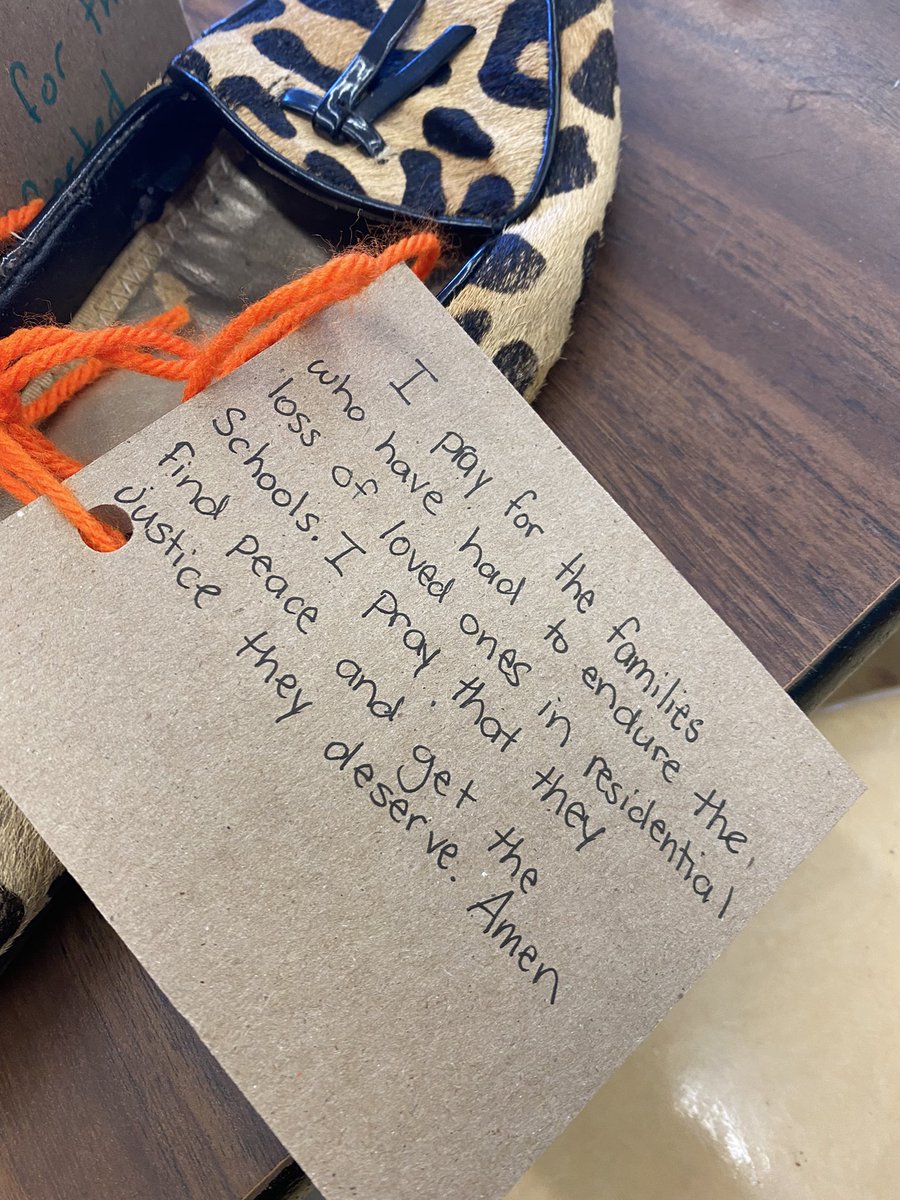 for
I pray for the families
who have had to endure the
loss of loved ones in residential
Schools. I pray that they
find peace and get the
justice they deserve. Amen